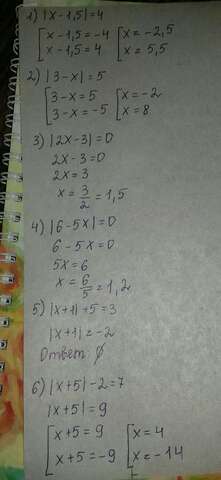 1) |x-1,5|=4
[x-1,5=-4 [x=-2,5
[x-1,5=4 [x=5,5
2) |3-x|=5
[3-x=5 [x=-2
[3-x=-5 [x=8
3) |2x-3|=0
2x-3=0
2x=3
x=3/2=1,5
4) |6-5x|=0
6-5x=0
5x=6
x=6/5=1,2
5) |x+1|+5=3
|x+1|=-2
Ответ ∅
6) |x+5|-2=7
|x+5|=9
[x+5=9 [x=4
[x+5=-9 [x=-14